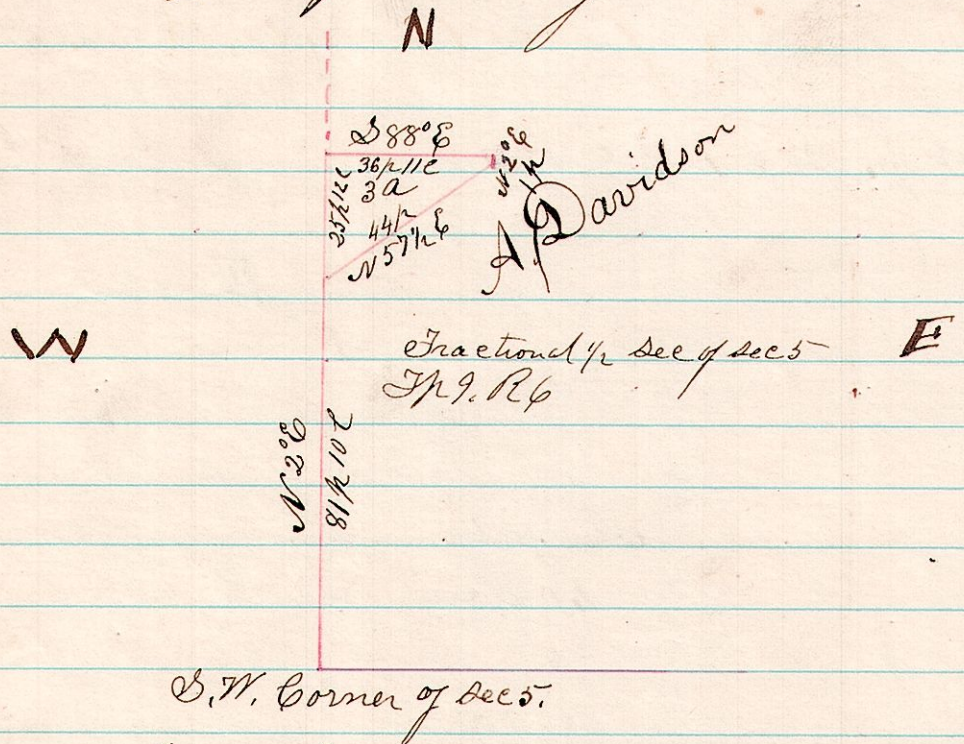 N
S 88° E
36p 11l
3 A
25p 12l
44p
N 57 1/2 E
N 2° E
1p
A. Davidson
W
E
Fractional 1/2 Sec of Sec 5
Tp 9. R 6
N 2° E
81p 10l
S. W. Corner of Sec 5.